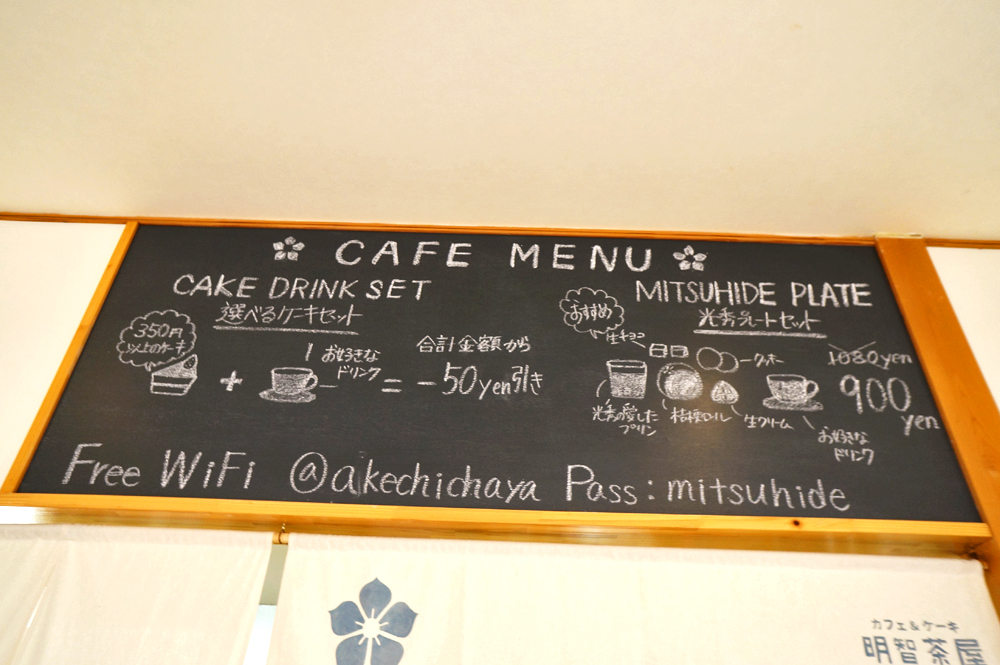 CAFE MENU
CAKE DRINK SET
選べるケーキセット
350円
以上のケーキ
+
お好きな
ドリンク
=
合計金額から
-50yen引き
MITSUHIDE PLATE
光秀プレートセット
おすすめ
生チョコ
クッキー
光秀の愛した
プリン
桔梗ロール
生クリーム
お好きな
ドリンク
1080yen
900
yen
Free WiFi @akechichaya Pass:mitsuhide
カフェ&ケーキ
明智茶屋